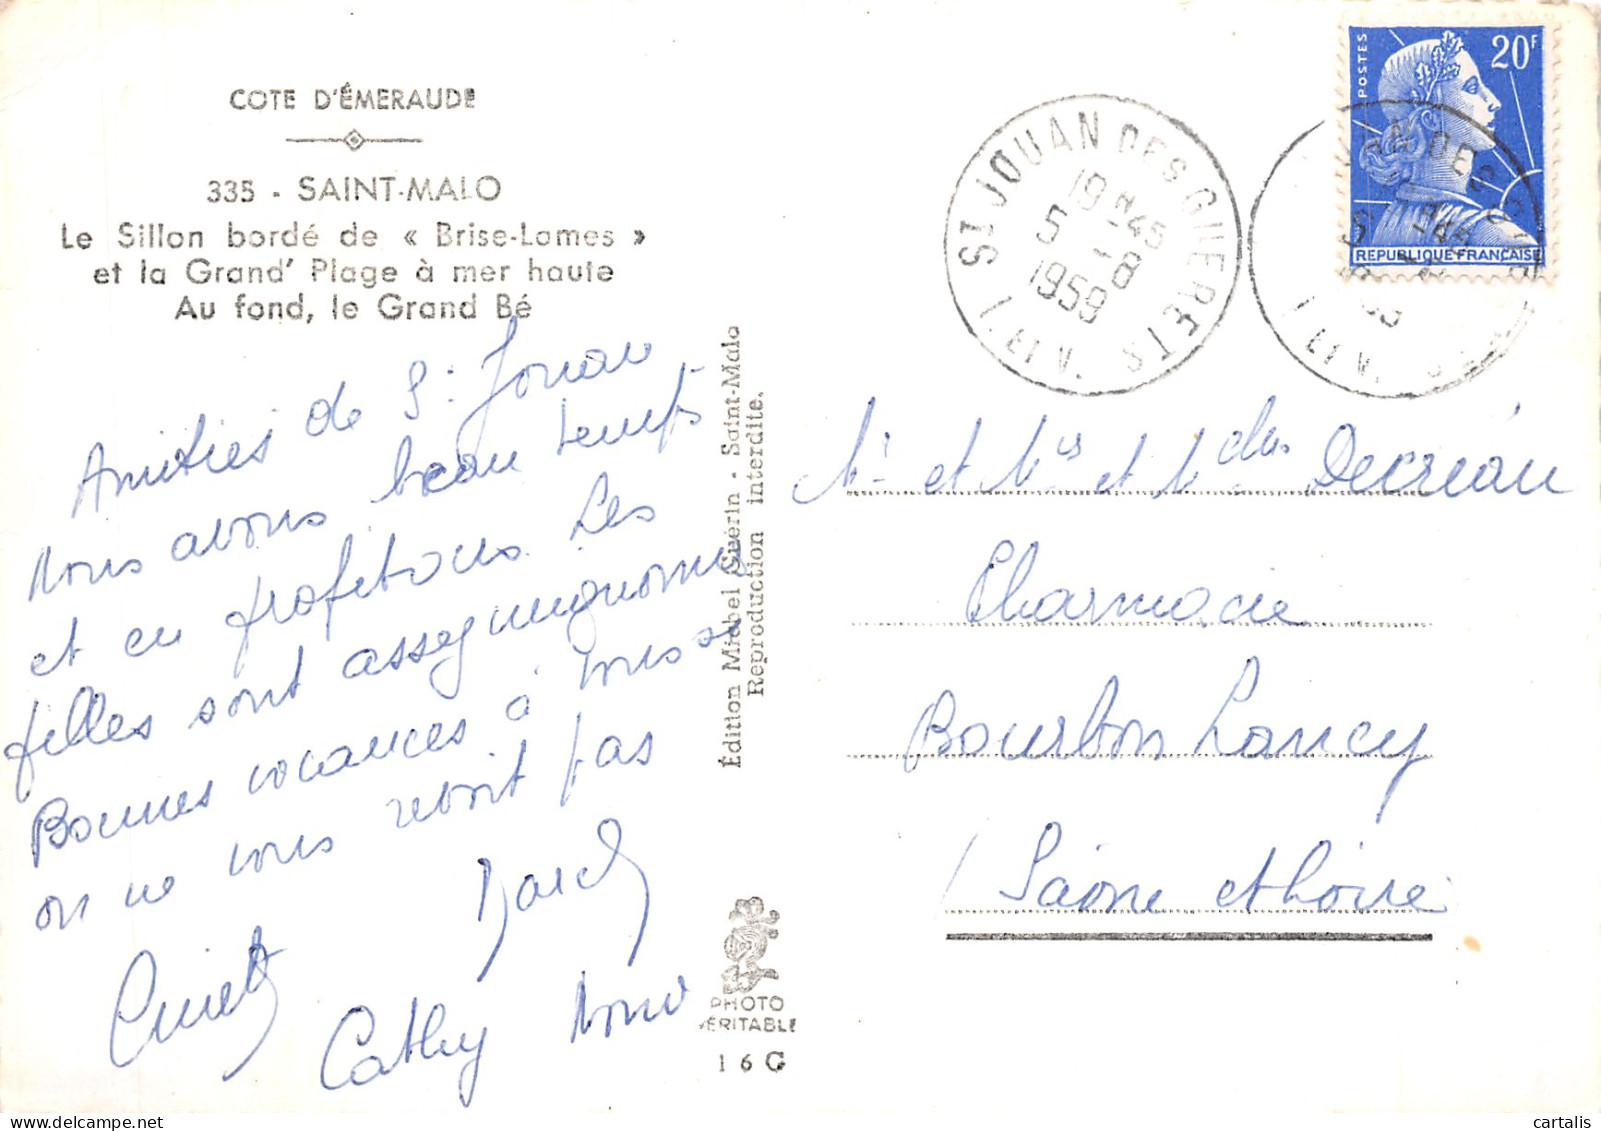 COTE D'ÉMERAUDE
335 - SAINT-MALO
Le Sillon bordé de « Brise-Lames »
et la Grand' Plage à mer haute
Au fond, le Grand Bé
Amitiés de St Jouan
Nous avons beau temps
et en profitons. Les
filles sont assez mignonnes
Bonnes vacances à tous
on ne vous revoit pas
Cathy
Édition Michel Guérin - Saint-Malo
Reproduction interdite.
PHOTO
VÉRITABLE
16G
POSTES
20F
REPUBLIQUE FRANÇAISE
ST JOUAN DES GUERETS
19H45
5 -8
1959
(I. ET V.)
Mr et Mme et Mlles Decréau
Pharmacie
Bourbon Lancy
(Saône et Loire
cartalis